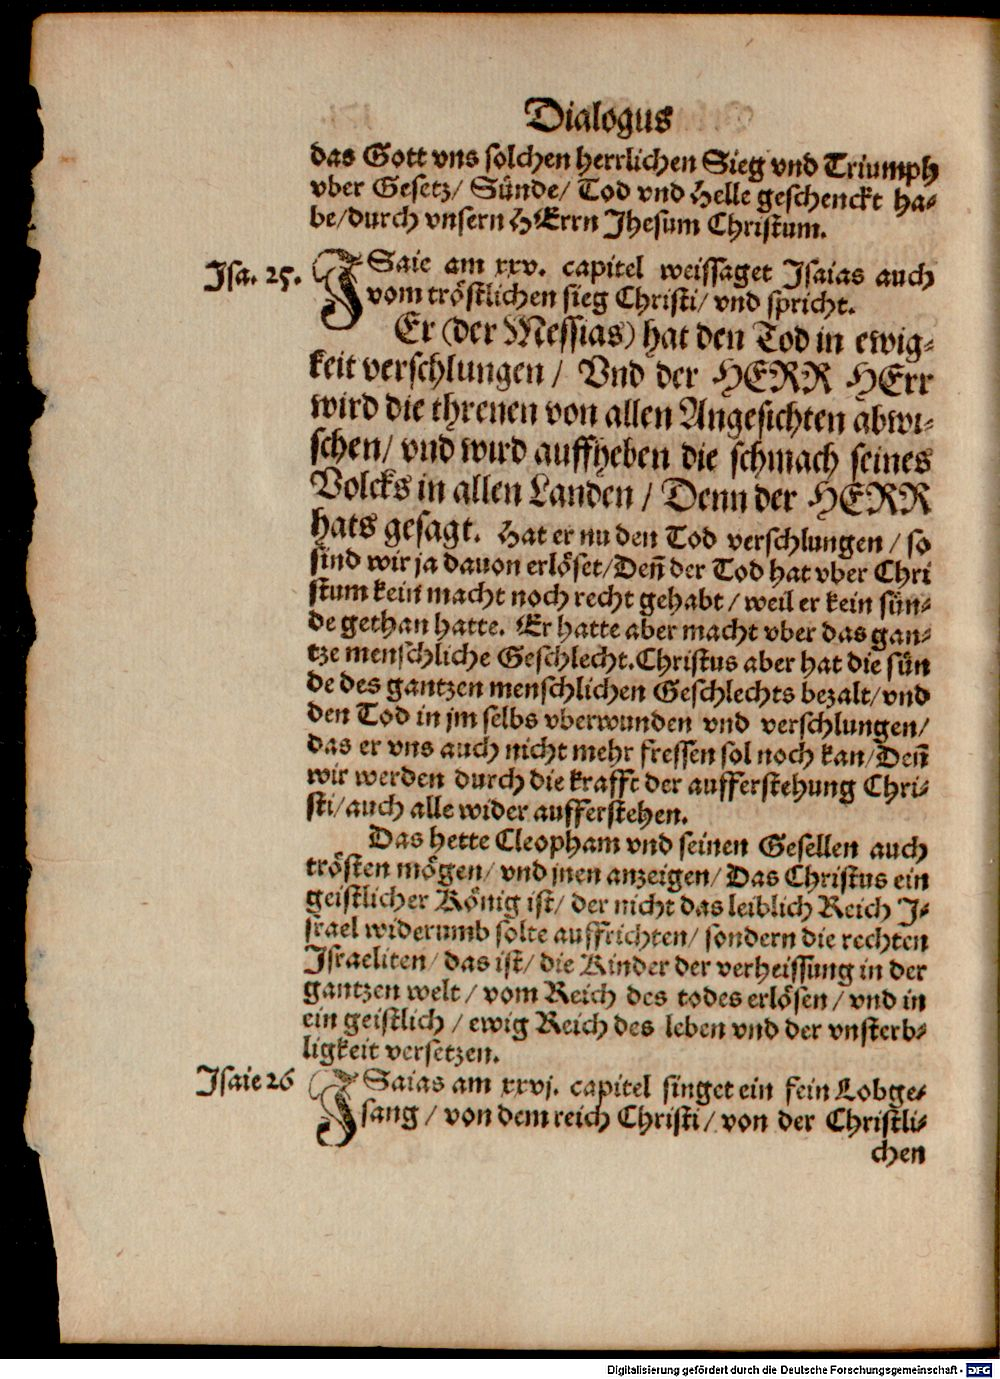 Dialogus
das Gott vns solchen herrlichen Sieg vnd Triumph
vber Gesetz/ Sünde/ Tod vnd Helle geschenckt ha⸗
be/durch vnsern HErrn Jhesum Christum.
Isa. 25.
ISaie am xxv. capitel weissaget Isaias auch
vom tröstlichen sieg Christi/ vnd spricht.
Er (der Messias) hat den Tod in ewig⸗
keit verschlungen / Vnd der HERR HErr
wird die threnen von allen Angesichten abwi⸗
schen/ vnd wird auffheben die schmach seines
Volcks in allen Landen / Denn der HERR
hats gesagt. Hat er nu den Tod verschlungen / so
sind wir ja dauon erlöset/Deñ der Tod hat vber Chri
stum kein macht noch recht gehabt / weil er kein sün⸗
de gethan hatte. Er hatte aber macht vber das gan⸗
tze menschliche Geschlecht.Christus aber hat die sün
de des gantzen menschlichen Geschlechts bezalt/vnd
den Tod in jm selbs vberwunden vnd verschlungen/
das er vns auch nicht mehr fressen sol noch kan/Deñ
wir werden durch die krafft der aufferstehung Chri⸗
sti/auch alle wider aufferstehen.
Das hette Cleopham vnd seinen Gesellen auch
trösten mögen/ vnd jnen anzeigen/ Das Christus ein
geistlicher König ist/ der nicht das leiblich Reich I⸗
srael widerumb solte auffrichten/ sondern die rechten
Israeliten/ das ist/ die Kinder der verheissung in der
gantzen welt / vom Reich des todes erlösen / vnd in
ein geistlich / ewig Reich des leben vnd der vnsterb⸗
ligkeit versetzen.
Isaie 26
ISaias am xxvj. capitel singet ein fein Lobge⸗
sang / von dem reich Christi / von der Christli⸗
chen
Digitalisierung gefördert durch die Deutsche Forschungsgemeinschaft - DFG